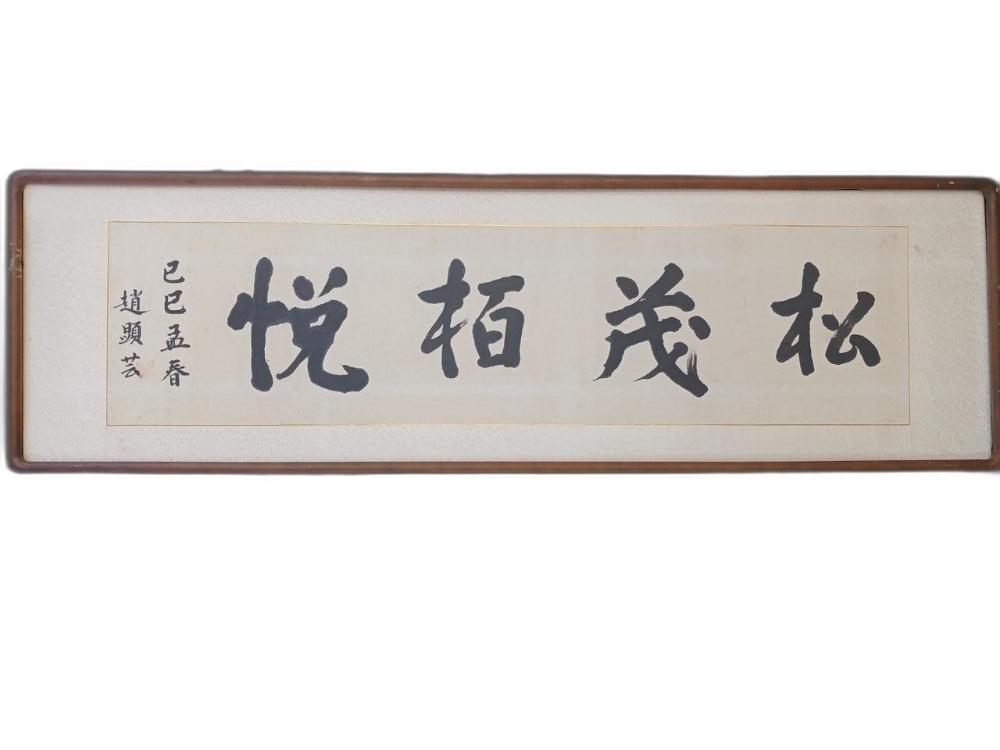 松茂栢悦
己巳孟春
趙顕芸